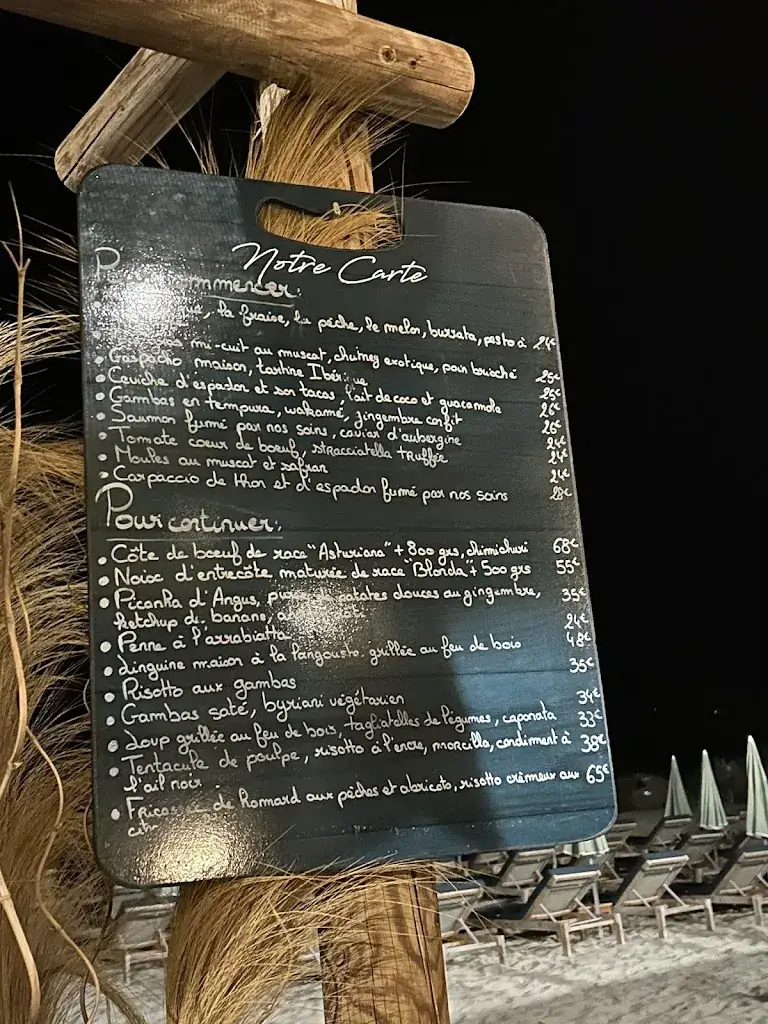 Notre Carte
commencer:
la fraise, la pêche, le melon, burrata, pesto à 24€
mi-cuit au muscat, chutney exotique, pain brioché 25€
• Gaspacho maison, tartine Ibérique
• Ceviche d'espadon et son tacos, lait de coco et guacamole 26€
• Gambas en tempura, wakamé, gingembre confit 26€
• Saumon fumé par nos soins, caviar d'aubergine 24€
• Tomate coeur de boeuf, stracciatella truffée 24€
• Moules au muscat et safran 24€
• Carpaccio de thon et d'espadon fumé par nos soins 28€
Pour continuer:
• Côte de boeuf de race "Asturiana" + 800 grs, chimichuri 68€
• Noix d'entrecôte maturée de race "Blonda" + 500 grs 55€
• Picanha d'Angus, patates douces au gingembre, 35€
ketchup de banane,
• Penne à l'arrabiatta 24€
• Linguine maison à la langouste grillée au feu de bois 48€
• Risotto aux gambas 35€
• Gambas saté, byriani végétarien 34€
• Loup grillée au feu de bois, tagliatelles de légumes, caponata 33€
• Tentacule de poulpe, risotto à l'encre, morcilla, condiment à 38€
l'ail noir
• de Homard aux pêches et abricots, risotto crémeux aux 65€